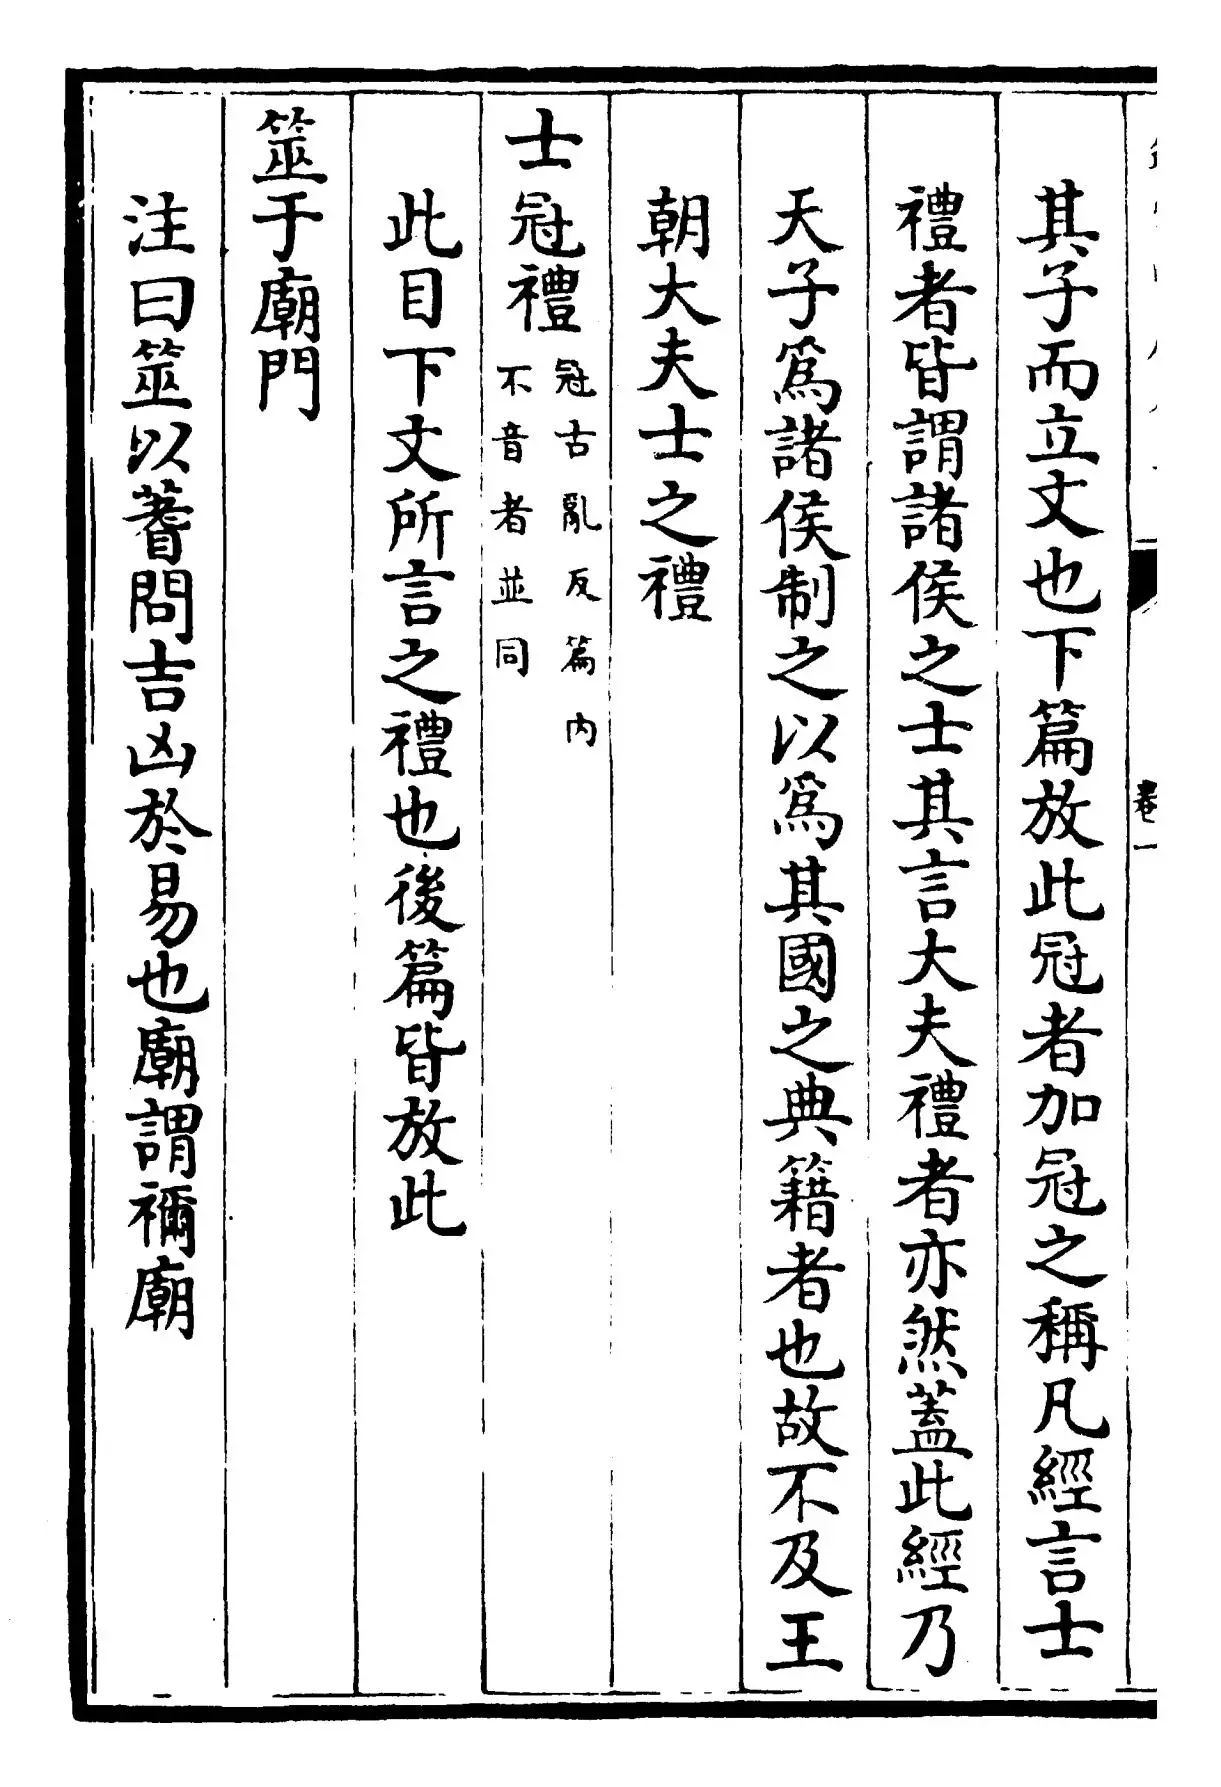 其子而立文也下篇放此冠者加冠之稱凡經言士
禮者皆謂諸侯之士其言大夫禮者亦然蓋此經乃
天子爲諸侯制之以爲其國之典籍者也故不及王
朝大夫士之禮
士冠禮冠古亂反篇內
不音者並同
此目下文所言之禮也後篇皆放此
筮于廟門
注曰筮以蓍問吉凶於易也廟謂禰廟
卷一